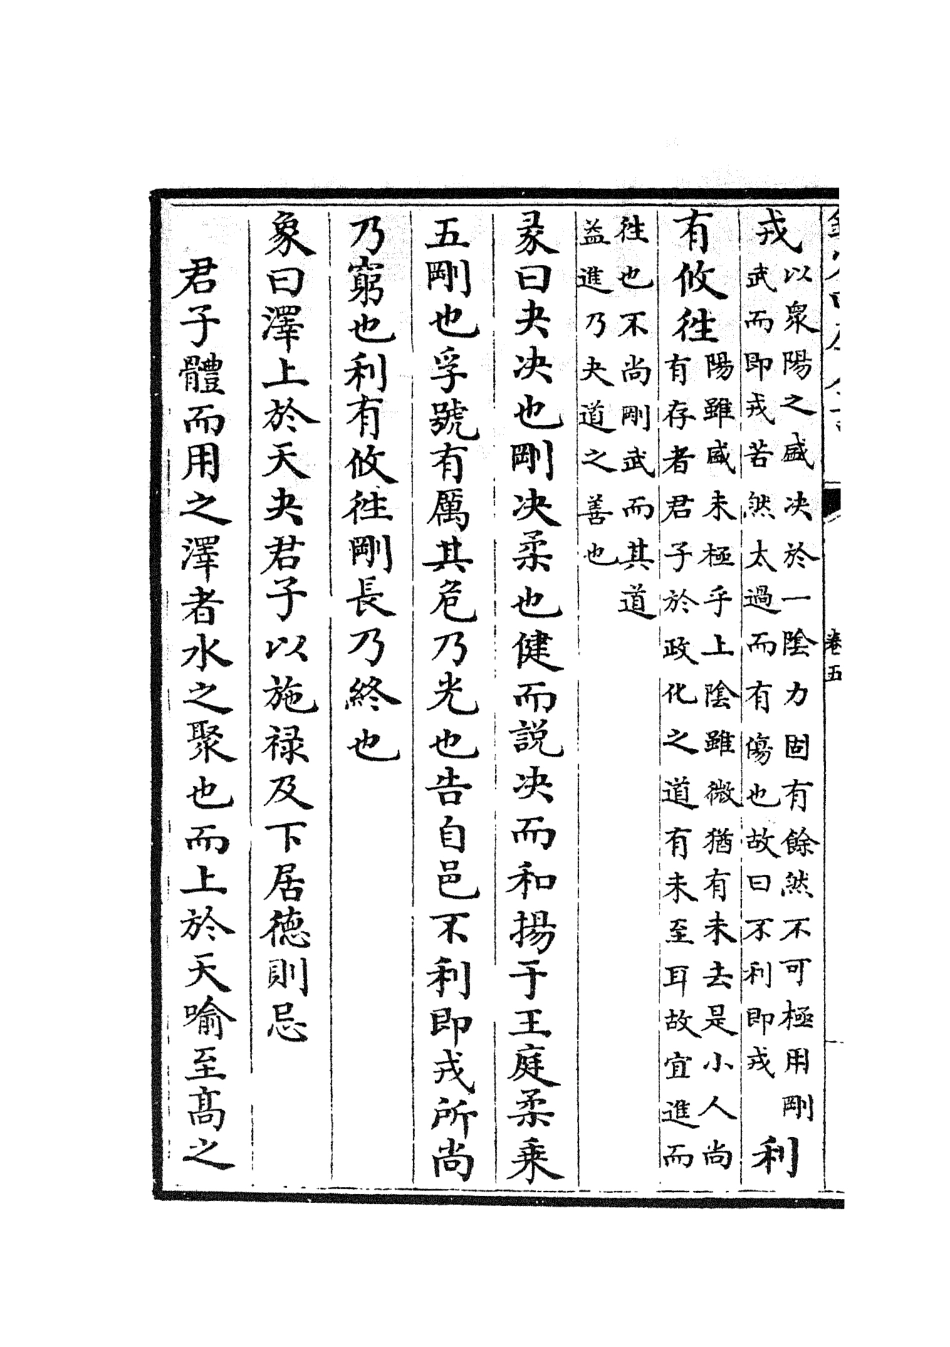 卷五
戎以衆陽之盛决於一陰力固有餘然不可極用剛
武而即戎若然太過而有傷也故曰不利即戎利
有攸往陽雖盛未極乎上陰雖微猶有未去是小人尚
有存者君子於政化之道有未至耳故宜進而
往也不尚剛武而其道
益進乃夬道之善也
彖曰夬决也剛决柔也健而說决而和揚于王庭柔乗
五剛也孚號有厲其危乃光也告自邑不利即戎所尚
乃窮也利有攸往剛長乃終也
象曰澤上於天夬君子以施禄及下居德則忌
君子體而用之澤者水之聚也而上於天喻至髙之